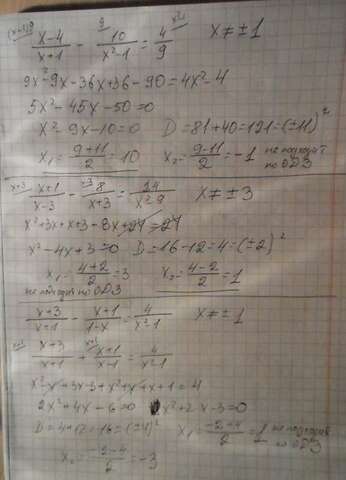 (x-1)9 9 x²-1
x-4/x+1 - 10/x²-1 = 4/9 x≠±1
9x²-9x-36x+36-90=4x²-4
5x²-45x-50=0
x²-9x-10=0 D=81+40=121=(±11)²
x₁=9+11/2=10 x₂=9-11/2=-1 не подходит по ОДЗ
x+3 x+1/x-3 - x-3 8/x+3 = 24/x²-9 x≠±3
x²+3x+x+3-8x+24=24
x²-4x+3=0 D=16-12=4=(±2)²
x₁=4+2/2=3 x₂=4-2/2=1
не подходит по ОДЗ
x+3/x+1 - x+1/1-x = 4/x²-1 x≠±1
x+3/x+1 + x+1/x-1 = 4/x²-1
x²-x+3x-3+x²+x+x+1=4
2x²+4x-6=0 x²+2x-3=0
D=4+12=16=(±4)² x₁=-2+4/2=1 не подходит по ОДЗ
x₂=-2-4/2=-3